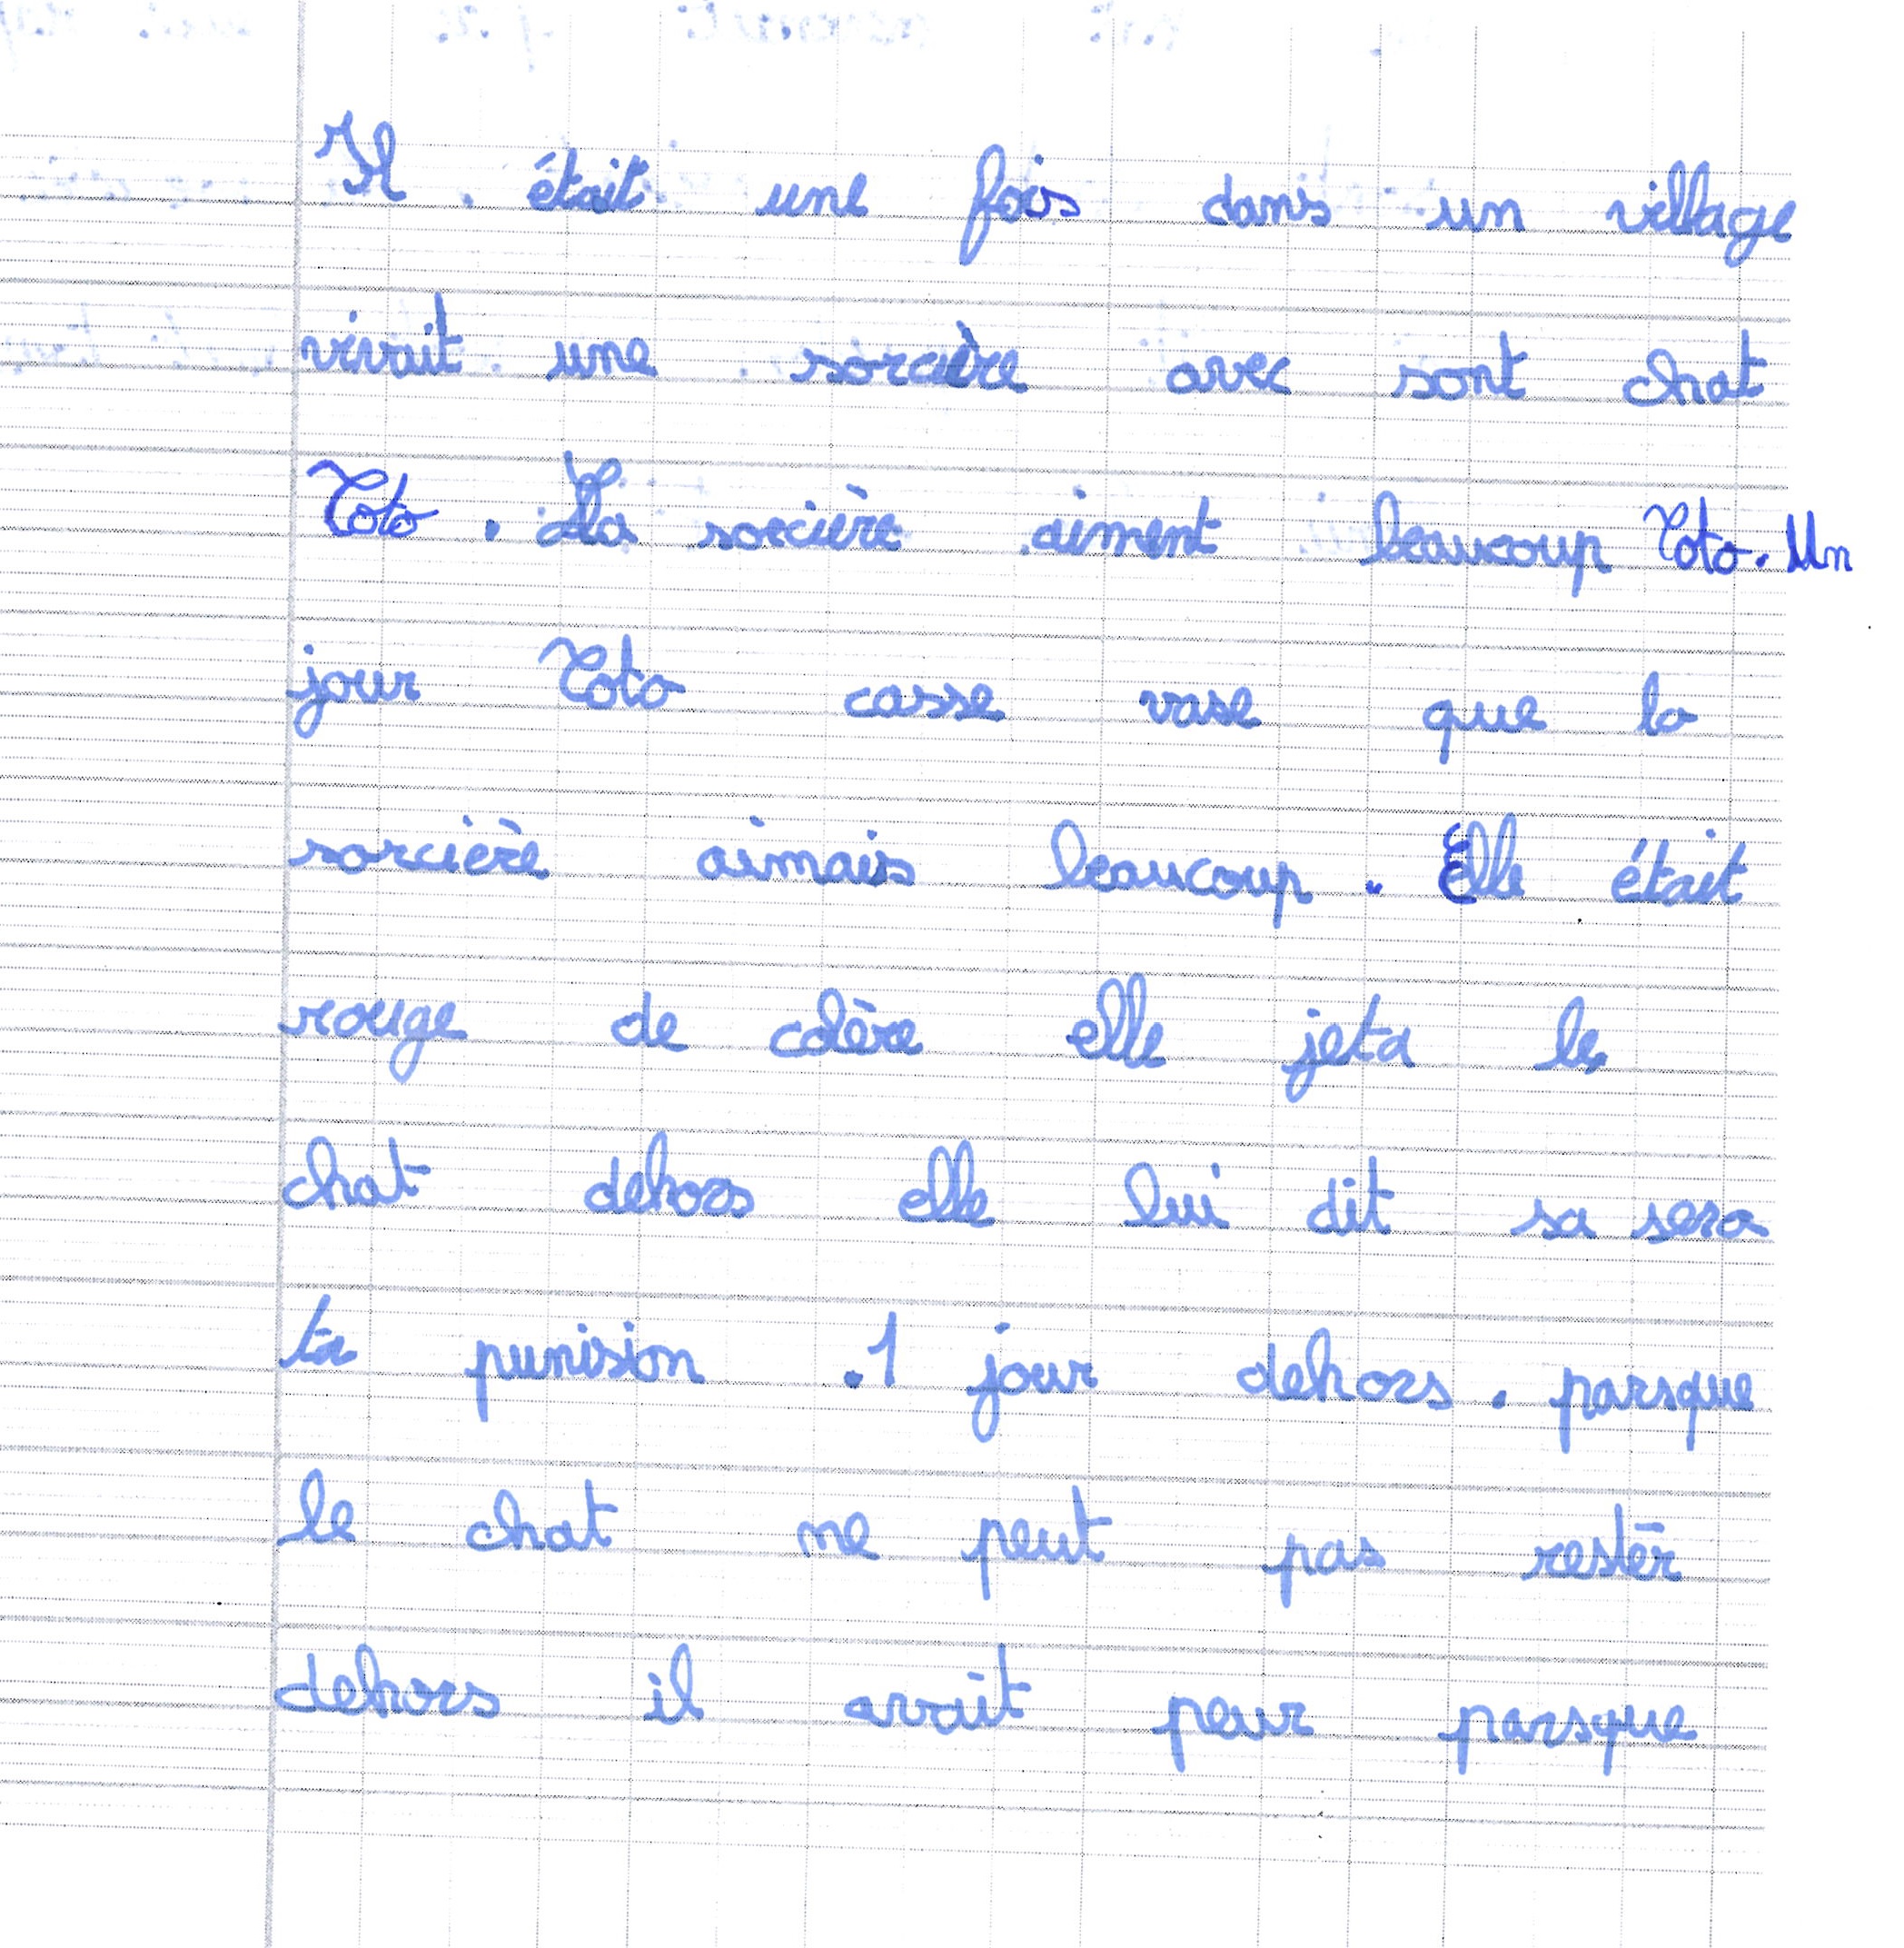 Il était une fois dans un village
vivait une sorcière avec sont chat
Toto. La sorcière aiment beaucoup Toto. Un
jour Toto casse vase que la
sorcière aimais beaucoup. Elle était
rouge de colère elle jeta le
chat dehors elle lui dit sa sera
ta punision. 1 jour dehors. parsque
le chat ne peut pas rester
dehors il avait peur parsque